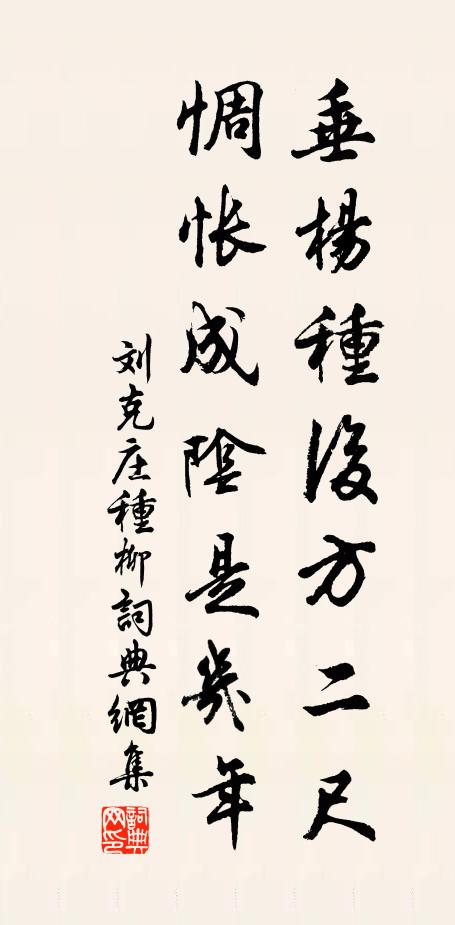 垂楊種後方二尺
惆怅成陰是幾年
刘克庄種柳詞典網集
詞典網印